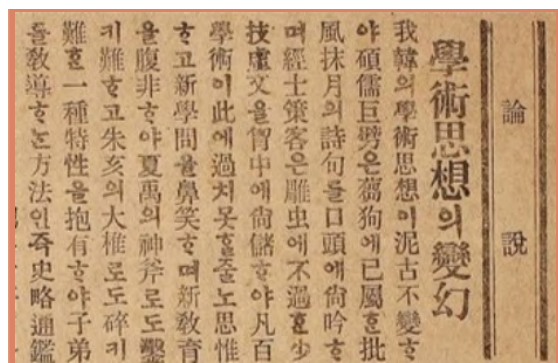 論說
學術思想의變幻
我韓의學術思想이泥古不變ᄒ
야碩儒巨劈은蒭狗에已屬ᄒᆫ批
風抹月의詩句를口頭에尙吟ᄒ
며經士策客은雕虫에不過ᄒᆫ少
技虛文을胷中에尙儲ᄒ야凡百
學術이此에過치못ᄒᆯ줄노思惟
ᄒ고新學問을鼻笑ᄒ며新敎育
을腹非ᄒ야夏禹의神斧로도鑿
키難ᄒ고朱亥의大椎로도碎키
難ᄒᆫ一種特性을抱有ᄒ야子弟
를敎導ᄒᄂᆫ方法인즉史略通鑑